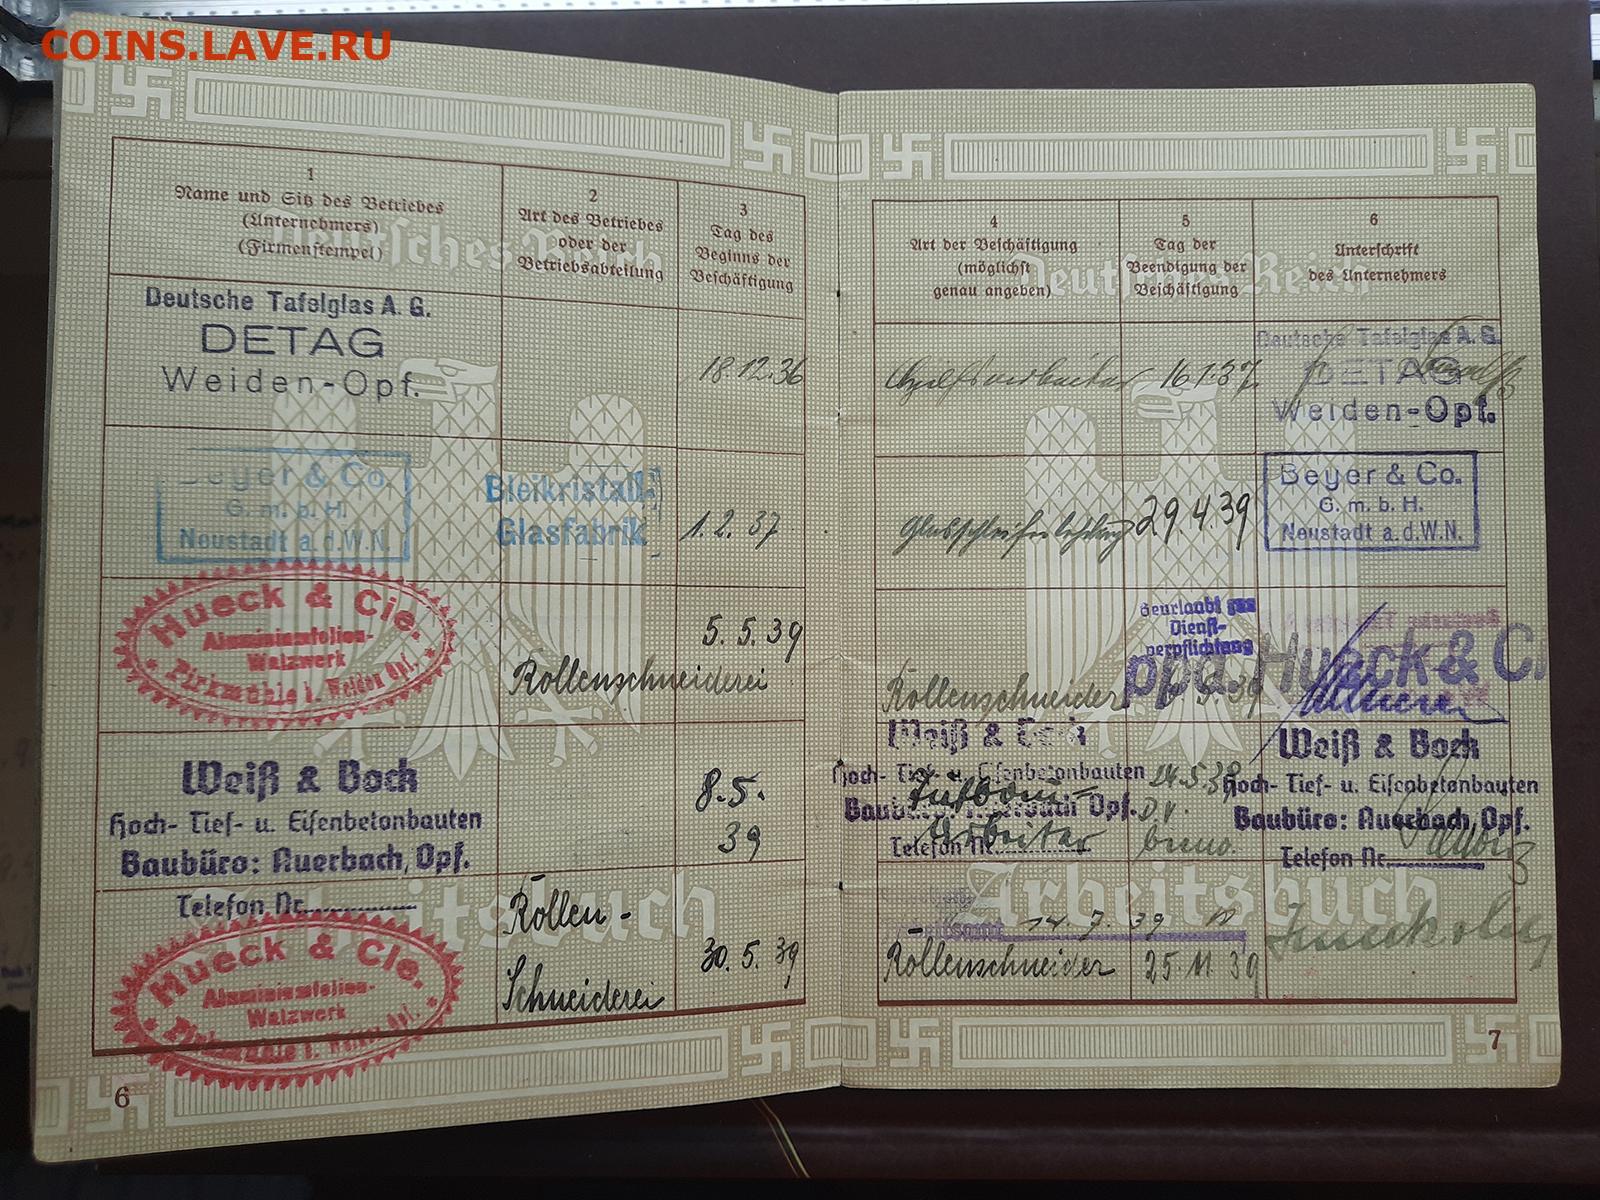 COINS.LAVE.RU
1
Name und Sitz des Betriebes
(Unternehmers)
(Firmenstempel)
2
Art des Betriebes
oder der
Betriebsabteilung
3
Tag des
Beginns der
Beschäftigung
Deutsches Reich
Deutsche Tafelglas A. G.
DETAG
Weiden-Opf.
18.12.36
Beyer & Co.
G. m. b. H.
Neustadt a.d.W.N.
Bleikristall-
Glasfabrik
1. 2. 37
Hueck & Cie.
Aluminiumfolien-
Walzwerk
Pirkmühle i. Weiden Opf.
Rollenschneiderei
5. 5. 39
Weiß & Boch
Hoch- Tief- u. Eisenbetonbauten
Baubüro: Auerbach, Opf.
Telefon Nr.
8.5.
39
Arbeitsbuch
Hueck & Cie.
Aluminiumfolien-
Walzwerk
Pirkmühle i. Weiden Opf.
Rollen-
Schneiderei
30. 5. 39
6
4
Art der Beschäftigung
(möglichst
genau angeben)
5
Tag der
Beendigung der
Beschäftigung
6
Unterschrift
des Unternehmers
Deutsches Reich
Hilfsarbeiter
16.1.37
Deutsche Tafelglas A. G.
DETAG
Weiden-Opf.
29.4.39
Beyer & Co.
G. m. b. H.
Neustadt a.d.W.N.
Beurlaubt zur
Dienst-
verpflichtung
Rollenschneider
ppa. Hueck & C
Weiß &
Hoch- Tief- u. Eisenbetonbauten
Opf.
Telefon Nr.
Tiefbau-
Arbeiter
24.5.39
Weiß & Boch
Hoch- Tief- u. Eisenbetonbauten
Baubüro: Auerbach, Opf.
Telefon Nr.
Arbeitsbuch
14. 7. 39
Rollenschneider
25. 11. 39
7